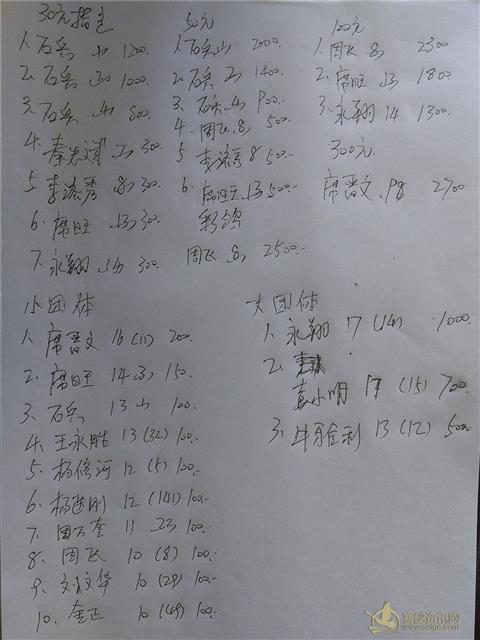 30元指定
1. 石兵 山 1200.
2. 石兵 1000.
3. 石兵 山 800.
4. 秦 300.
5 李洪秀 8, 300.
6. 席旺 13, 300.
7. 永翔 14, 300.
50元
1. 石兵 山 2000.
2. 石兵 1400.
3. 石兵 山 900.
4. 周飞 8, 500.
5 李洪秀 8 500.
6. 席旺 13 500.
周飞 8, 2500.
100元
1. 周飞 8, 2300
2. 席旺 13 1800
3. 永翔 14 1300.
300元.
席晋文 2700
小团体
1. 席晋文 16 (11) 200.
2. 席旺 14 150.
3. 石兵 13 山 100.
4. 王永胜 13 (32) 100.
5. 杨修河 12 (5) 100.
6. 杨进刚 12 (141) 100.
7. 周万奎 11 100.
8. 周飞 10 (8) 100.
9. 刘文华 10 (29) 100.
10. 金正 10 (49) 100.
大团体
1. 永翔 17 (14) 1000.
2.
袁小明 17 (15) 700.
3. 牛身利 13 (12) 500.
赛鸽资讯网